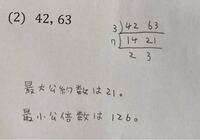 (2) 42, 63
3 ) 42 63
7 ) 14 21
2 3
最大公約数は21。
最小公倍数は126。